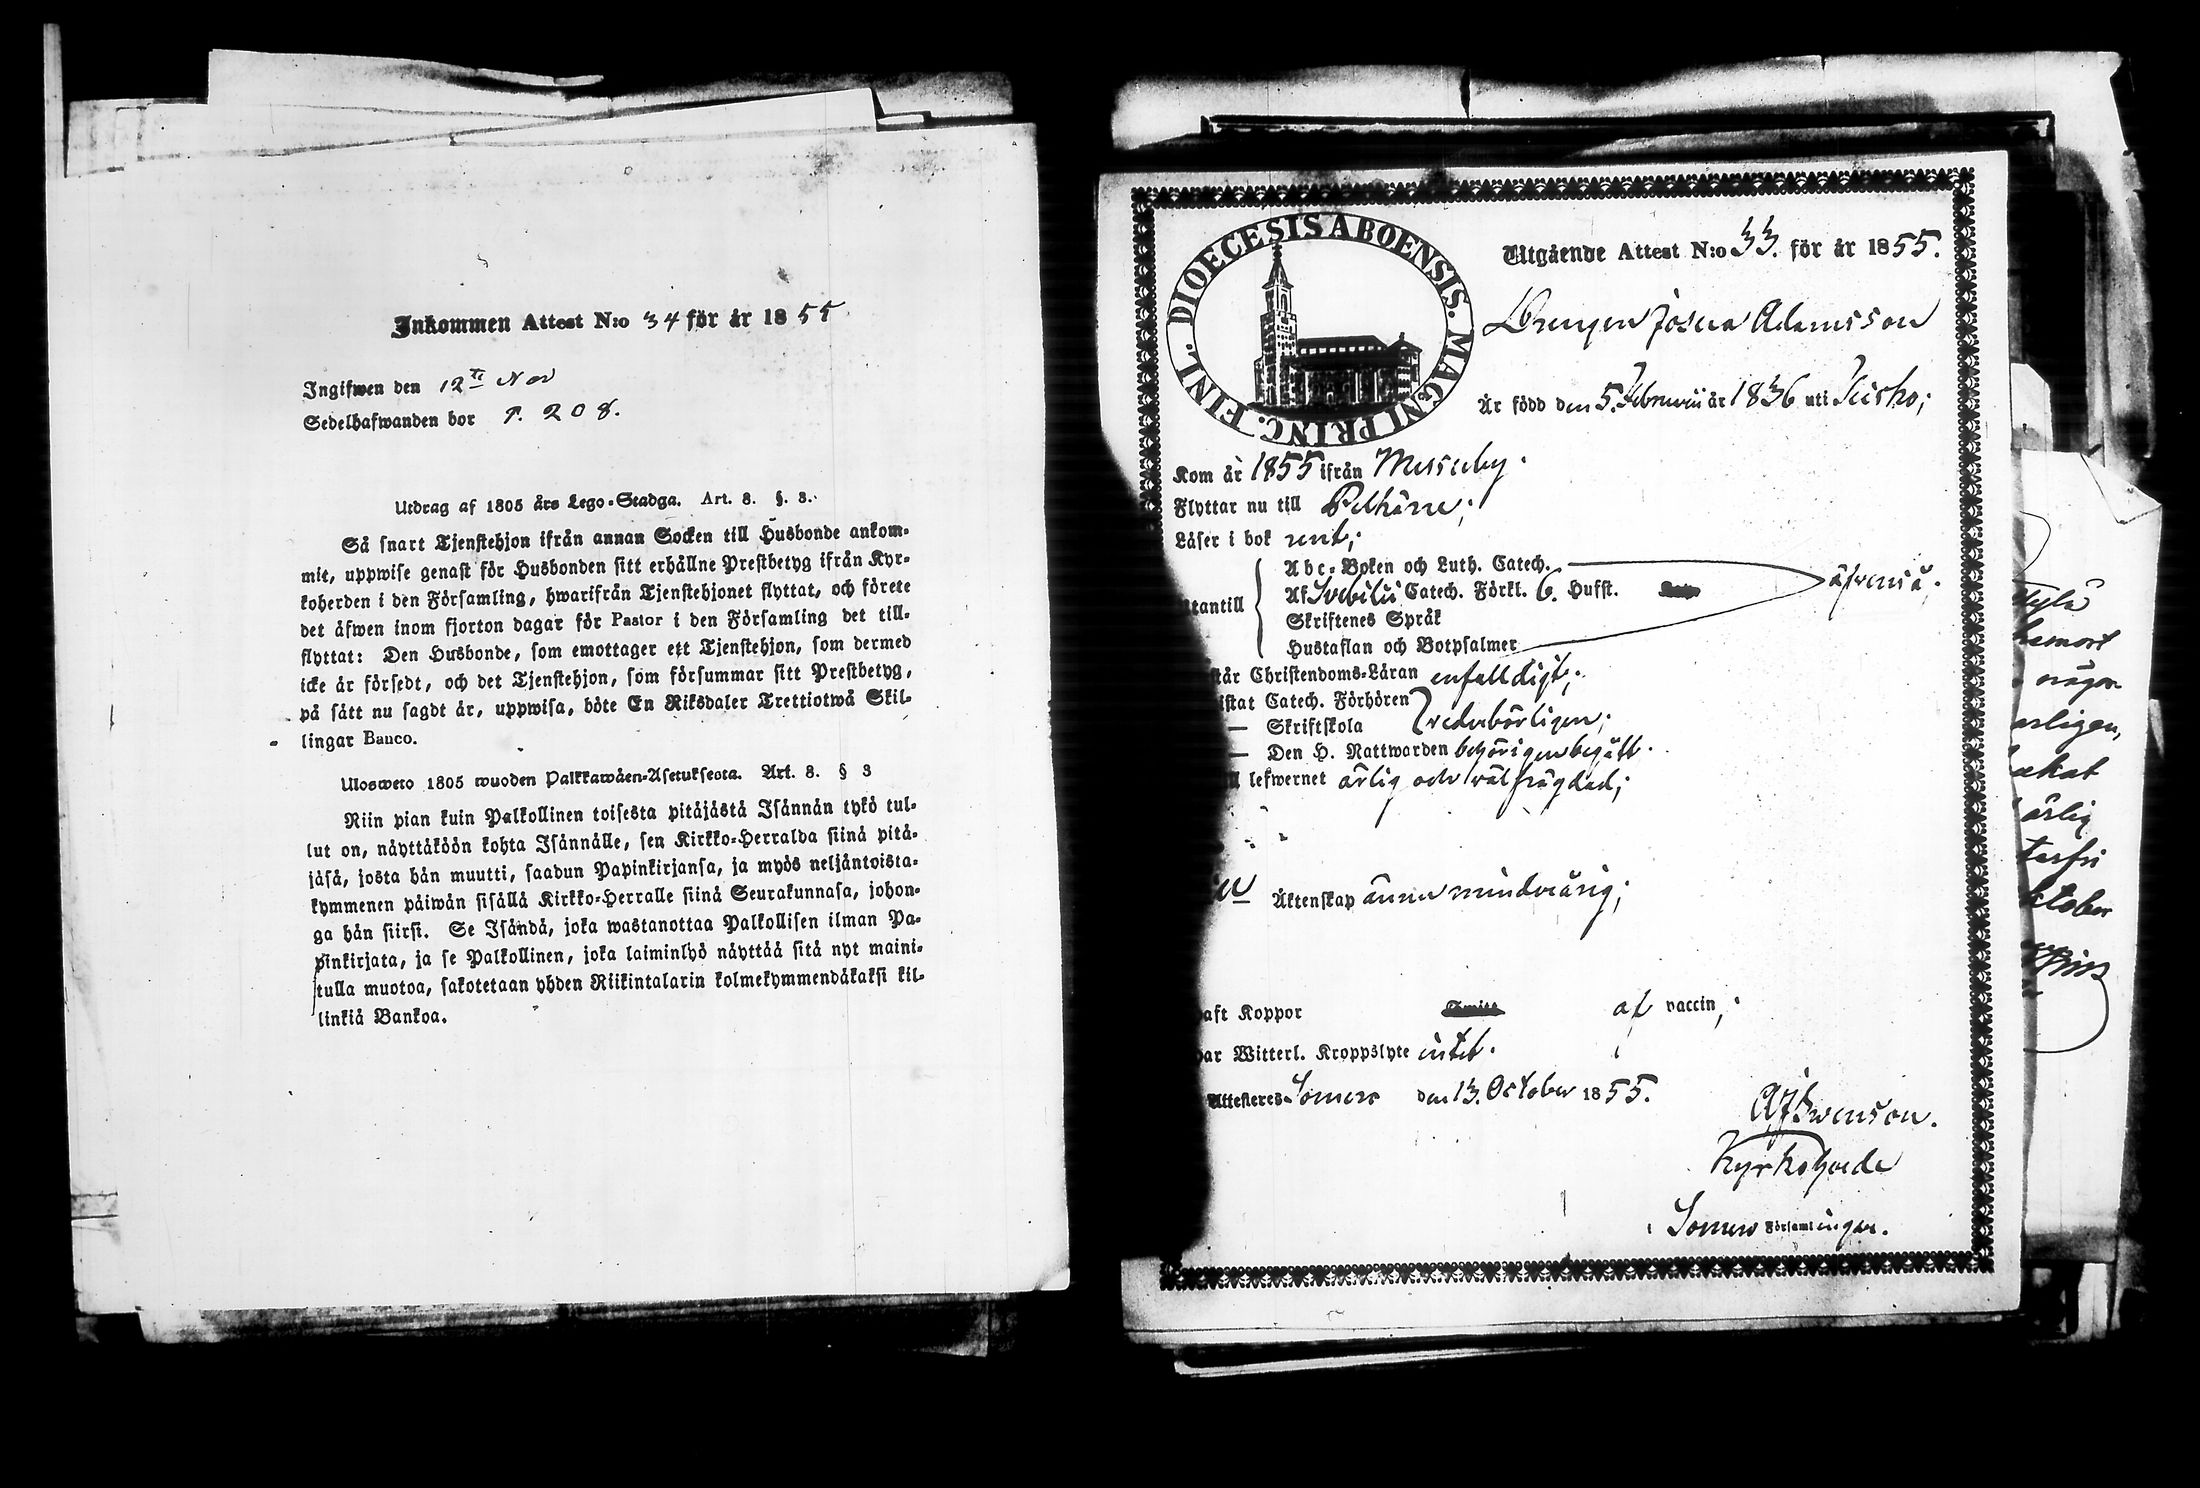 Inkommen Attest N:o 34 för år 1855
Ingifwen den 12te Nov
Sedelhafwanden bor p. 208.
Utdrag af 1805 års Lego-Stadga. Art. 8. §. 3.
Så snart Tjenstehjon ifrån annan Socken till Husbonde ankom-
mit, uppwise genast för Husbonden sitt erhållne Prestbetyg ifrån Kyr-
koherden i den Församling, hwarifrån Tjenstehjonet flyttat, och förete
det äfwen inom fjorton dagar för Pastor i den Församling det till-
flyttat: Den Husbonde, som emottager ett Tjenstehjon, som dermed
icke är försedt, och det Tjenstehjon, som försummar sitt Prestbetyg,
på sätt nu sagdt är, uppwisa, böte En Riksdaler Trettiotwå Skil-
lingar Banco.
Ulosweto 1805 wuoden Palkkawäen-Asetuksesta. Art. 8. § 3
Niin pian kuin Palkollinen toisesta pitäjästä Isännän tykö tul-
lut on, näyttäköön kohta Isännälle, sen Kirkko-Herralda siinä pitä-
jäsä, josta hän muutti, saadun Papinkirjansa, ja myös neljäntoista-
kymmenen päiwän sisällä Kirkko-Herralle siinä Seurakunnasa, johon-
ga hän siirsi. Se Isändä, joka wastanottaa Palkollisen ilman Pa-
pinkirjata, ja se Palkollinen, joka laiminlyö näyttää sitä nyt maini-
tulla muotoa, sakotetaan yhden Riikintalarin kolmekymmendäkaksi kil-
linkiä Bankoa.
DIOECESIS ABOENSIS. MAGNI PRINC. FINL.
Utgående Attest N:o 33. för år 1855.
Drengen Josua Adamsson
Är född den 5. Februarii år 1836 uti Kisko;
Kom år 1855 ifrån Messuby.
Flyttar nu till Pelkäne;
Läser i bok rent;
Abc-Boken och Luth. Catech.
Af Svebilii Catech. Förkl. 6. Hufst.
äfvenså.
tantill
Skriftenes Språk
Hustaflan och Botpsalmer
står Christendoms-Läran enfalldigt;
istat Catech. Förhören
— Skriftskola vederbörligen;
— Den H. Nattwarden behörigen begått.
ll lefwernet ärlig och välfrägdad;
Äktenskap ännu mindreårig;
haft Koppor af vaccin;
har Witterl. Kroppslyte intet.
Attesteres Somero den 13. October 1855.
A J Swenson.
Kyrkoherde
i Somero Församlingar.
hemort
någon
arligen,
akat
ärlig
October